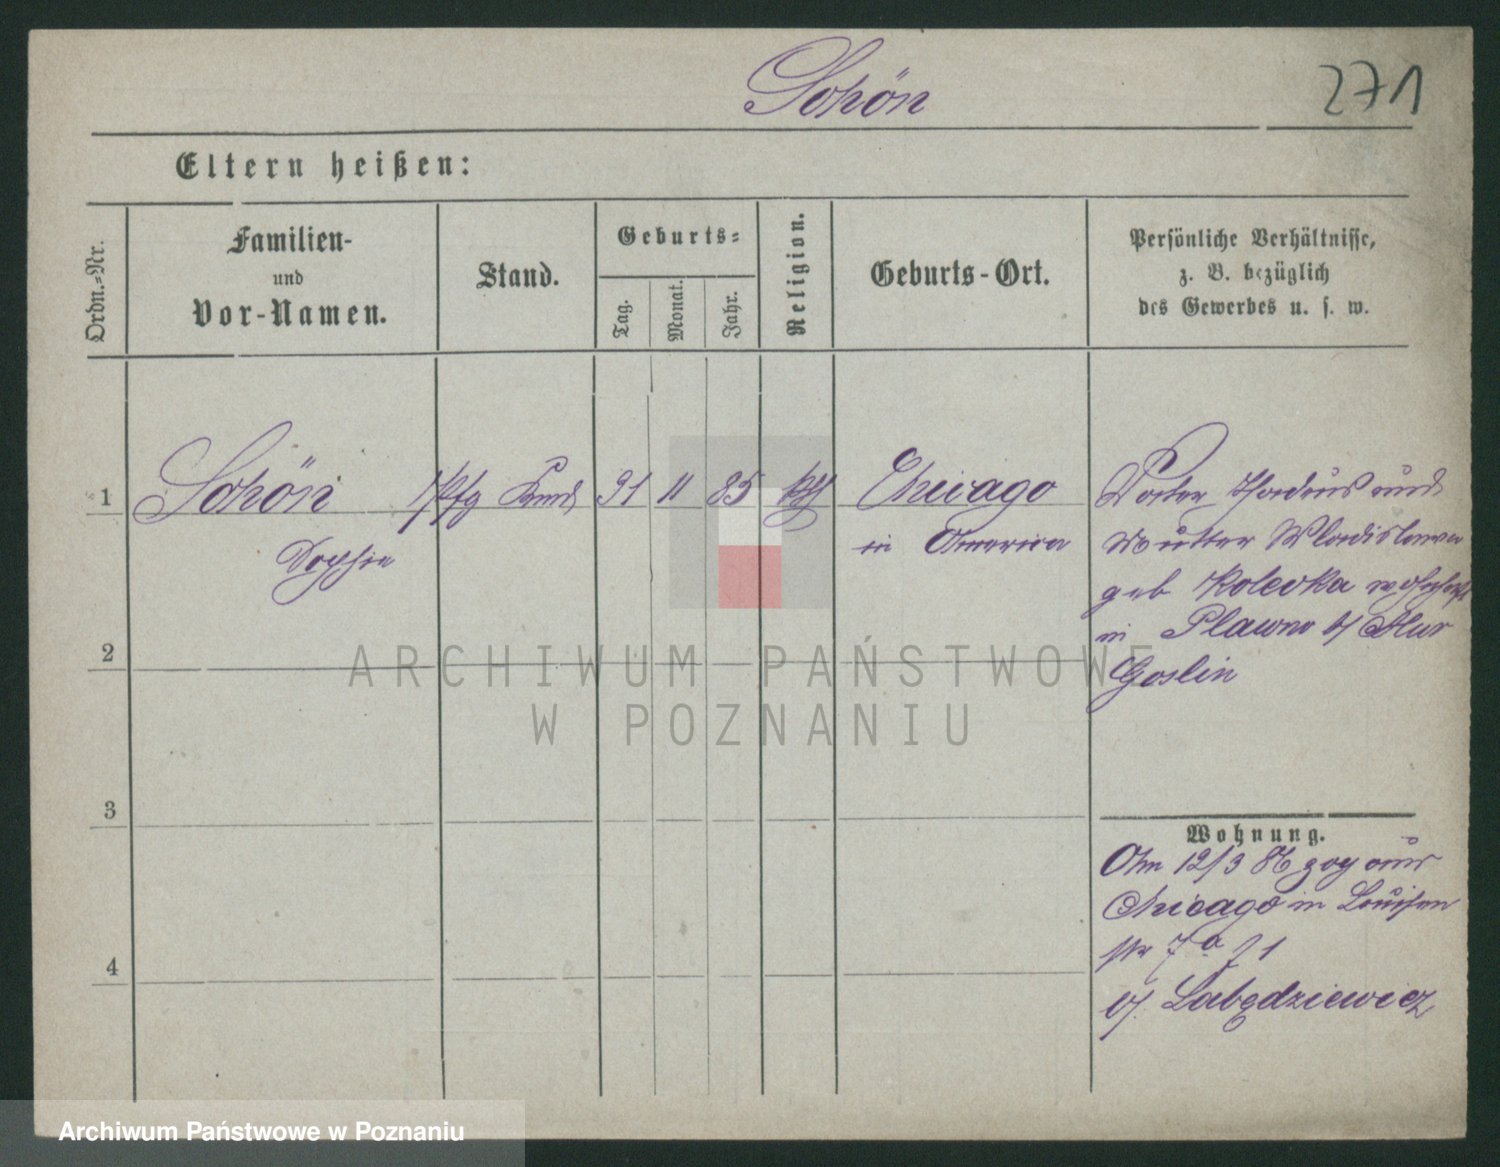 Schön
271
Eltern heißen:
Ordn.-Nr.
Familien-
und
Vor-Namen.
Stand.
Geburts-
Tag.
Monat.
Jahr.
Religion.
Geburts-Ort.
Persönliche Verhältnisse,
z. B. bezüglich
des Gewerbes u. s. w.
1 Schön Pflg Kind 31 11 85 kth Chicago
Sophie
in America
Vater Thadeus und
Mutter Wladislawa
geb wohnhaft
in Plawno b/ Mur
Goslin
2
3
4
Wohnung.
Am 12/3 86 zog aus
Chicago in Louisen
str 7a
b/. Labędziewicz
ARCHIWUM PAŃSTWOWE
W POZNANIU
Archiwum Państwowe w Poznaniu